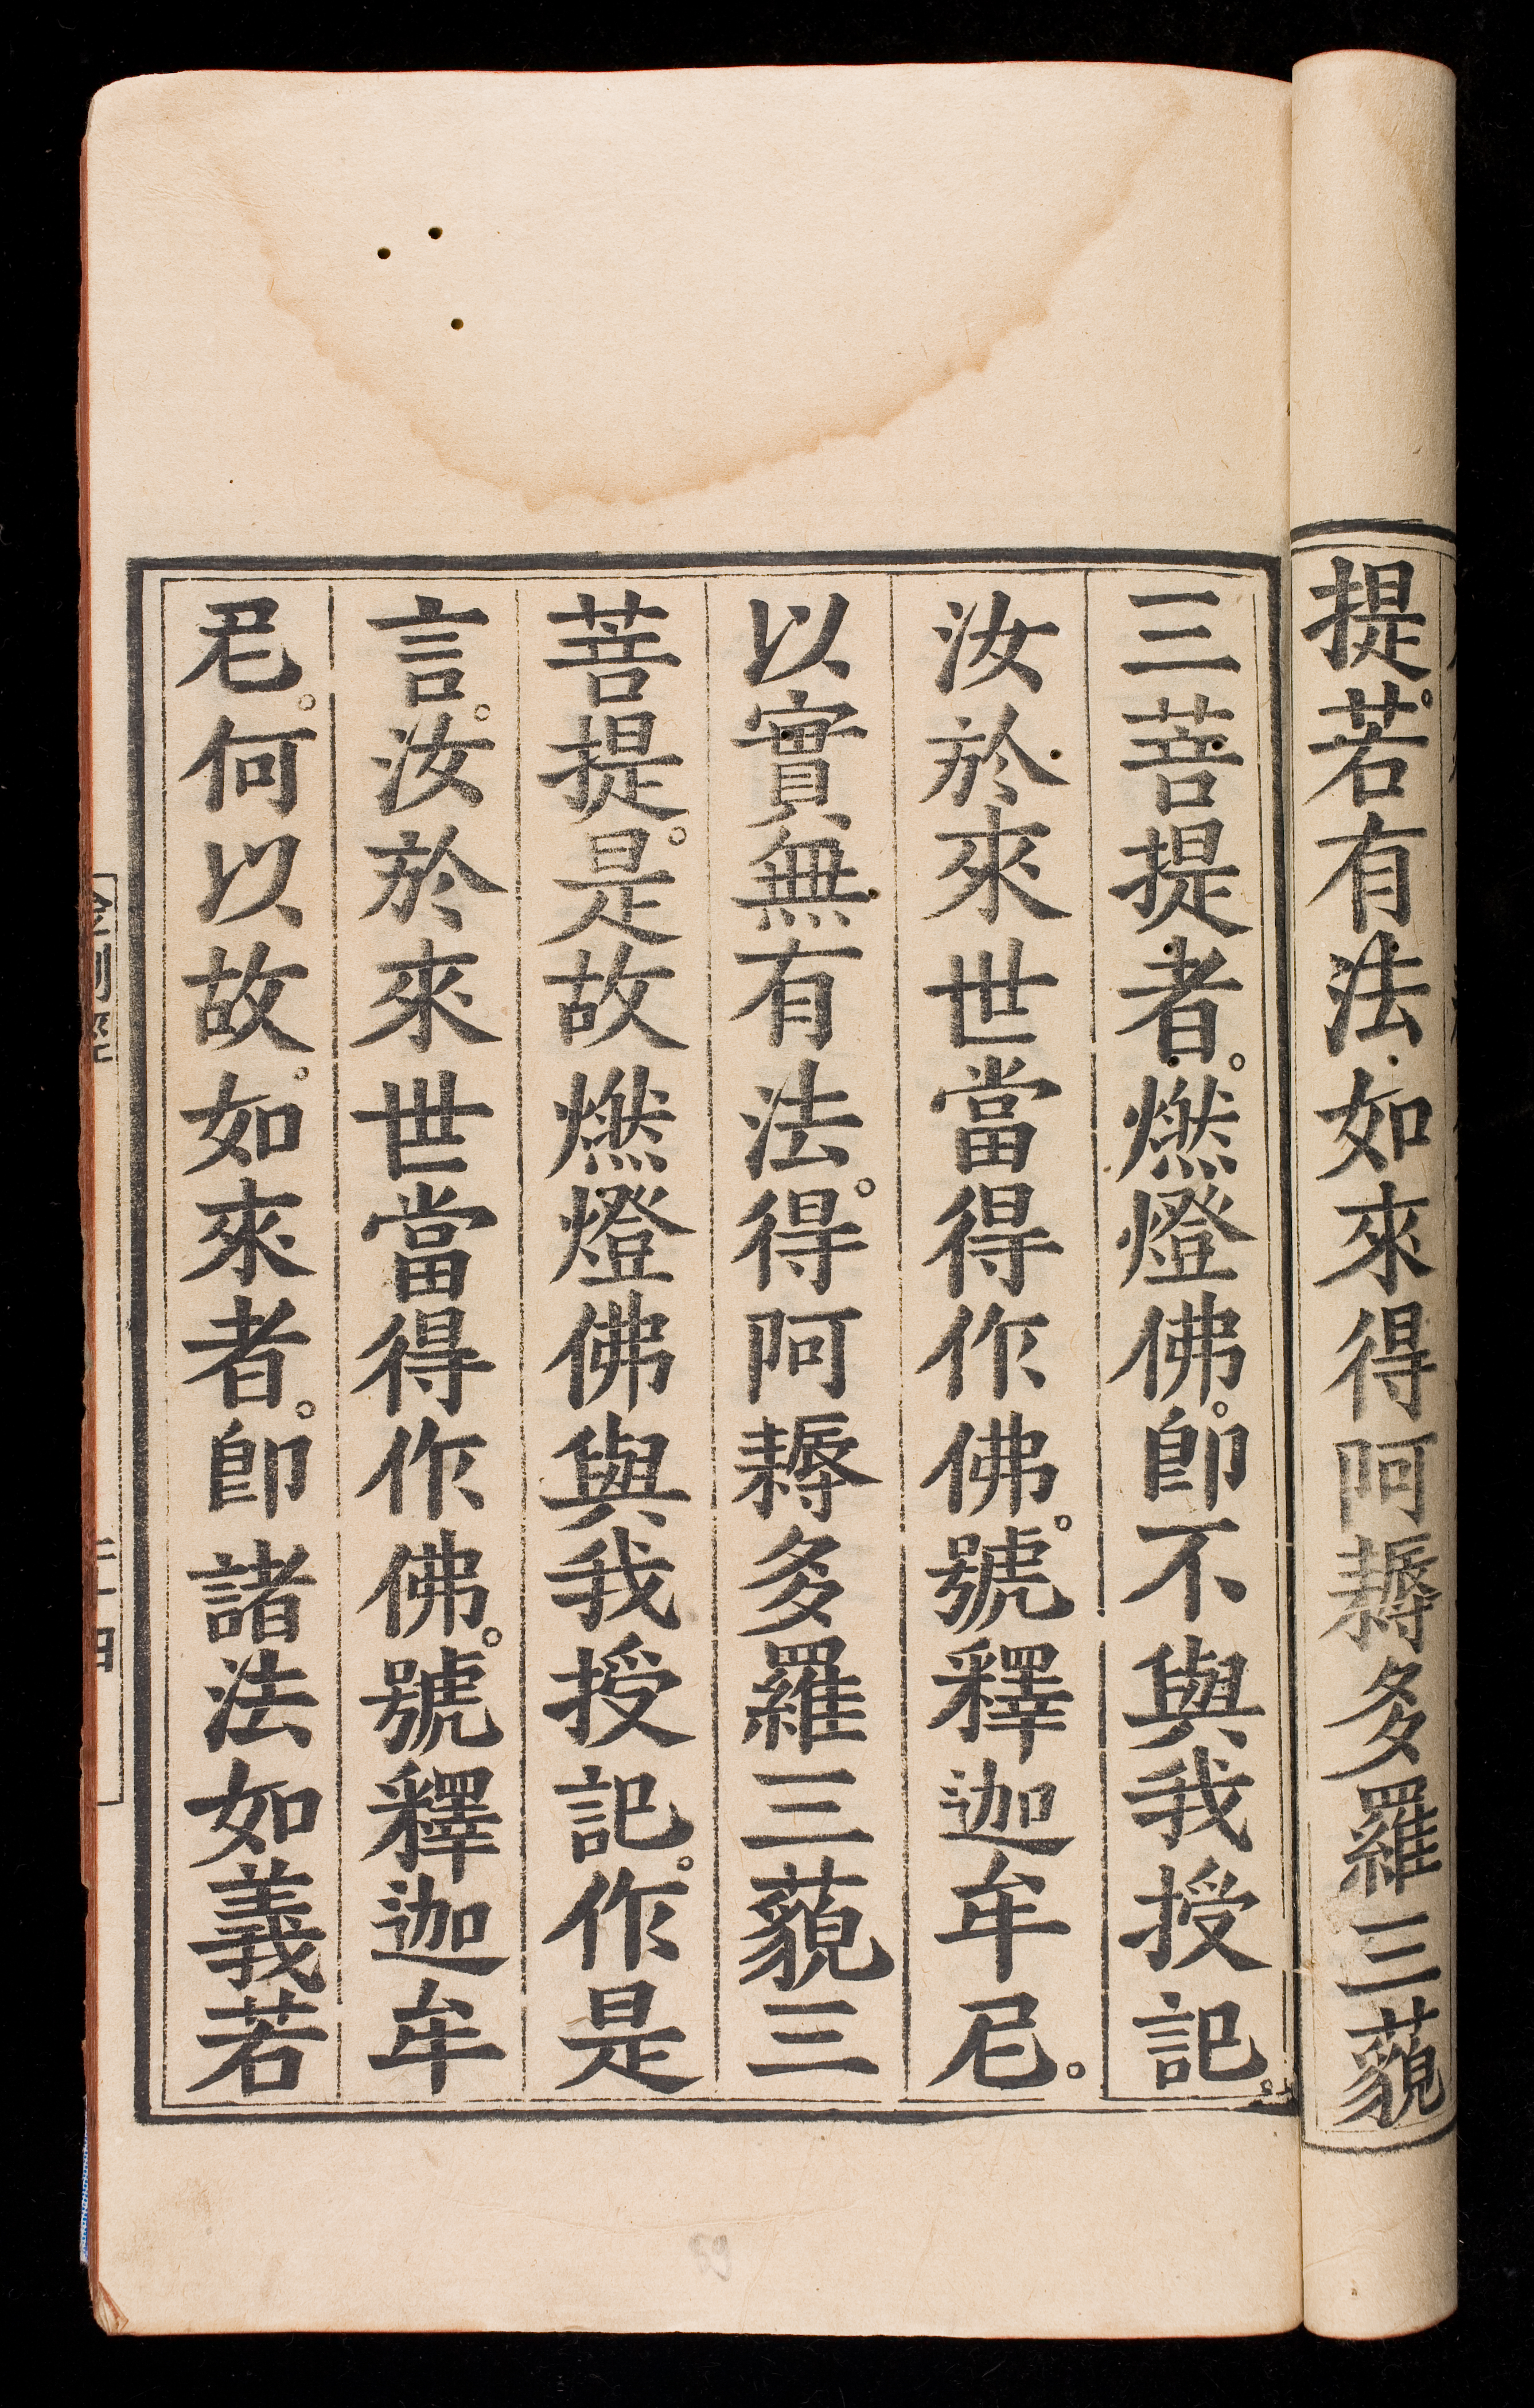 提。若有法如來得阿耨多羅三藐
三菩提者。燃燈佛。卽不與我授記。
汝於來世當得作佛。號釋迦牟尼。
以實無有法。得阿耨多羅三藐三
菩提。是故燃燈佛與我授記。作是
言。汝於來世當得作佛。號釋迦牟
尼。何以故。如來者。卽諸法如義若